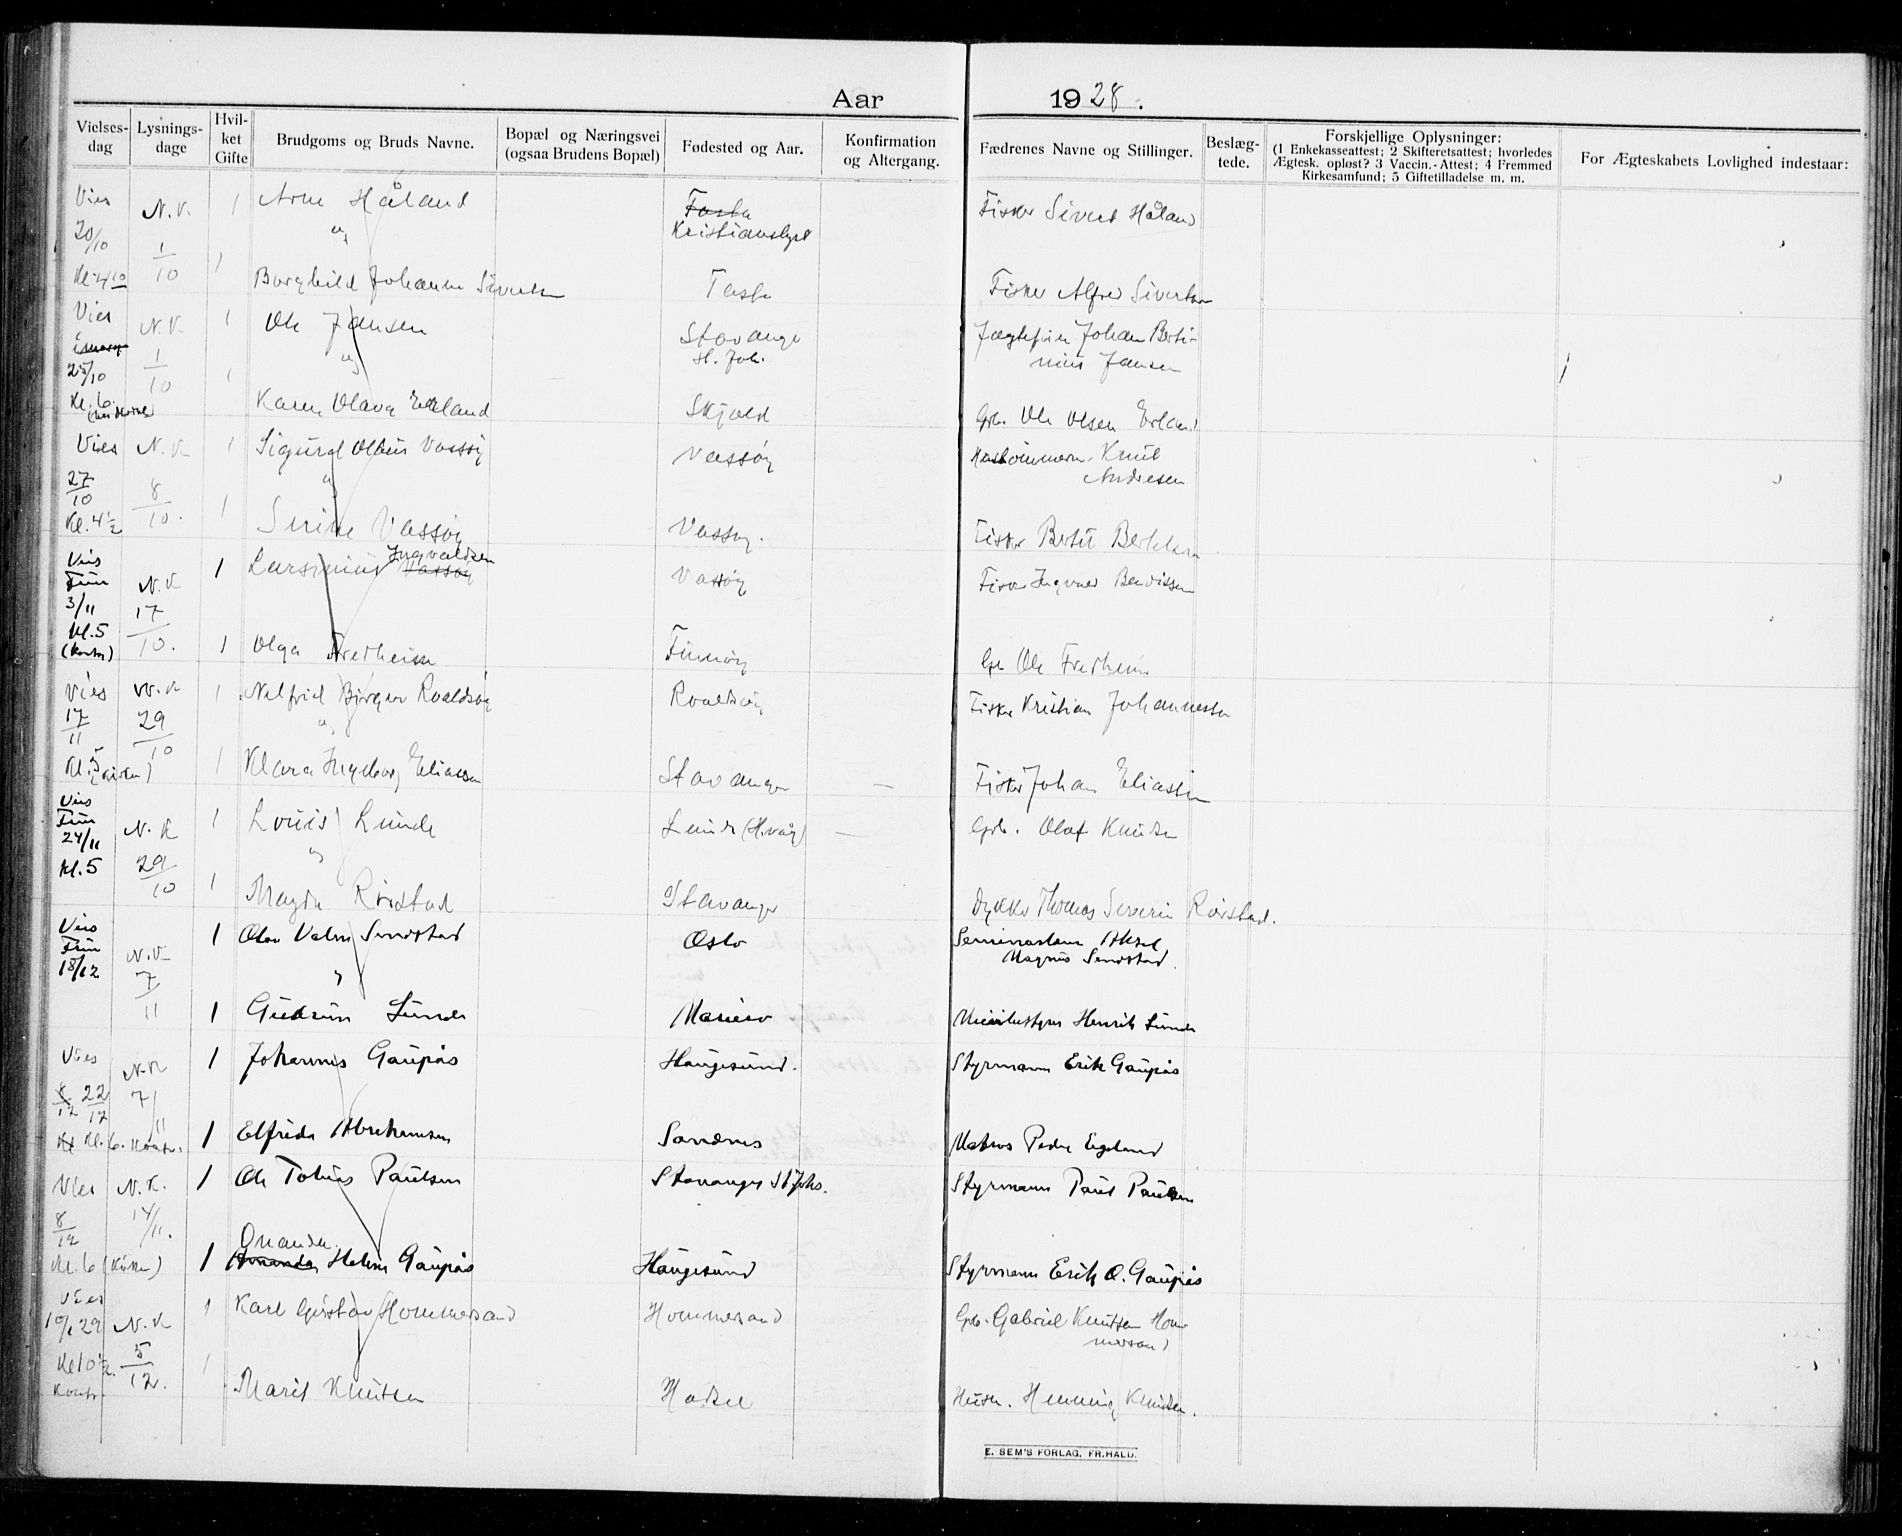 Aar 1928.
Vielses-dag
Lysnings-dage
Hvil-ket Gifte
Brudgoms og Bruds Navne.
Bopæl og Næringsvei (ogsaa Brudens Bopæl)
Fødested og Aar.
Konfirmation og Altergang.
Fædrenes Navne og Stillinger.
Beslæg-tede.
Forskjellige Oplysninger:
(1 Enkekasseattest; 2 Skifteretsattest; hvorledes
Ægtesk. opløst? 3 Vaccin.-Attest; 4 Fremmed
Kirkesamfund; 5 Giftetilladelse m. m.
For Ægteskabets Lovlighed indestaar:
Vies N. K. 1 Arne Håland Tasta Fisker Sivert Håland
20/10 1/10 og Kristianslyst
Kl. 4 10 1 Borghild Johanne Sivertsen Tasta Fisker Alfred Sivertsen
Vies N. K 1 Ole Jansen Stavanger Jægtefører Johan Berti-
25/10 1/10 og St. Joh. nius Jansen
Kl. 6. 1 Karen Olava Erland Skjold Grb. Ole Olsen Erland
Vies N. K 1 Sigurd Olaus Vassøy Vassøy Knut
27/10 8/10. og Andresen
Kl. 4 1/2 1 Serine Vassøy Vassøy. Fisker Bertel Bertelsen
Ingvaldsen
Vies Frue N. K 1 Larsinius Vassøy Vassøy Fisker Ingvald Bendiksen
3/11 17/10.
Kl. 5 (Kontor) 1 Olga Fredheim Finnøy Gb Ole Fredheim
Vies N. K 1 Nilfrid Bjørger Roaldsøy Roaldsøy Fisker Kristian Johannessen
17/11 29/10 og
Kl. 5 (Kirken) 1 Klara Ingeborg Eliassen Stavanger — Fisker Johan Eliassen
Vies Frue N. K 1 Louis Lunde Lunde (Høvåg) — Grb. Olaf Knudsen
24/11 29/10 og
Kl. 5 1 Magda Rørstad Stavanger Dykker Thomas Severin Rørstad.
Vies Frue N. K 1 Olav Valen Sendstad Oslo Seminarlærer Aksel
18/12 7/11 og Magnus Sendstad.
1 Gudrun Lunde Henrik Lunde
Vies N. K 1 Johannes Gaupås Haugesund. Styrmann Erik Gaupås
8/12 22/12 7/11
Kl Kl. 6. Kontr. 1 Elfrida Abrahamsen Sandnes Matros Peder Eigeland
Vies N. K. 1 Ole Tobias Paulsen Stavanger St Johs. Styrmann Paul Paulsen
8/12 14/11.
Onanda
Kl. 6 (Kirken) 1 Amanda Helene Gaupås Haugesund Styrmann Erik O. Gaupås
Vies 1 Karl Gustav Hommersand Hommersand Grb. Gabriel Knutsen Hom-
10/1 29 N. K mersand
Kl 10 1/2. 5/12. 1
Kontr. Marit Knutsen Hadsel Husm. Henning Knudsen.
E. SEM'S FORLAG, FR.HALD.